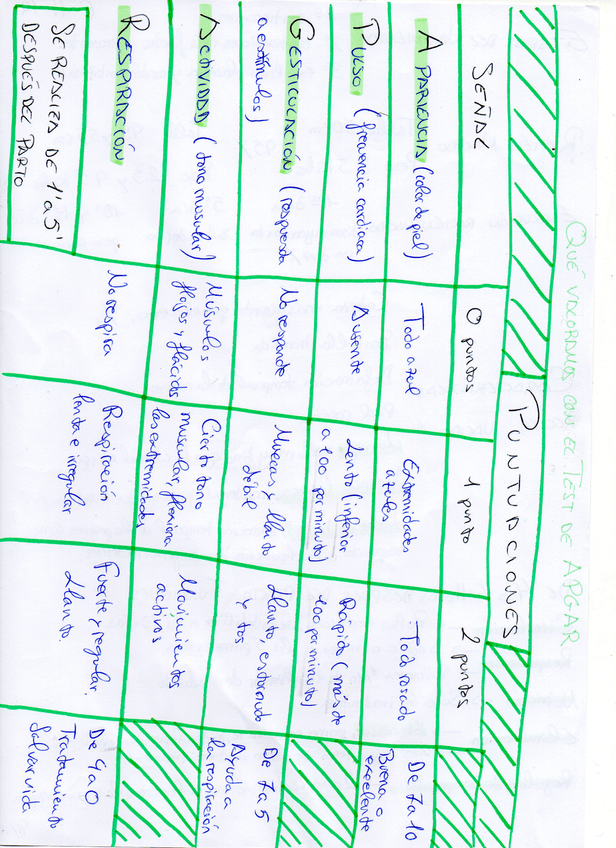 QUÉ VALORAMOS CON EL TEST DE APGAR
PUNTUACIONES
SEÑAL
0 puntos
1 punto
2 puntos
APARIENCIA (color de piel)
Todo azul
Extremidades
azules
Todo rosado
De 7 a 10
Buena o
excelente
PULSO (frecuencia cardiaca)
Ausente
Lento (inferior
a 100 por minuto)
Rápido (más de
100 por minuto)
GESTICULACIÓN (respuesta
a estímulos)
No responde
Muecas y llanto
débil
Llanto, estornudo
y tos
De 7 a 5
Ayuda a
la respiración
ACTIVIDAD (tono muscular)
Músculos
flojos y flácidos
Cierto tono
muscular, flexiona
las extremidades
Movimientos
activos
RESPIRACIÓN
No respira
Respiración
lenta e irregular
Fuerte y regular.
Llanto.
De 4 a 0
Tratamiento
Salvar vida
SE REALIZA DE 1' a 5'
DESPUÉS DEL PARTO